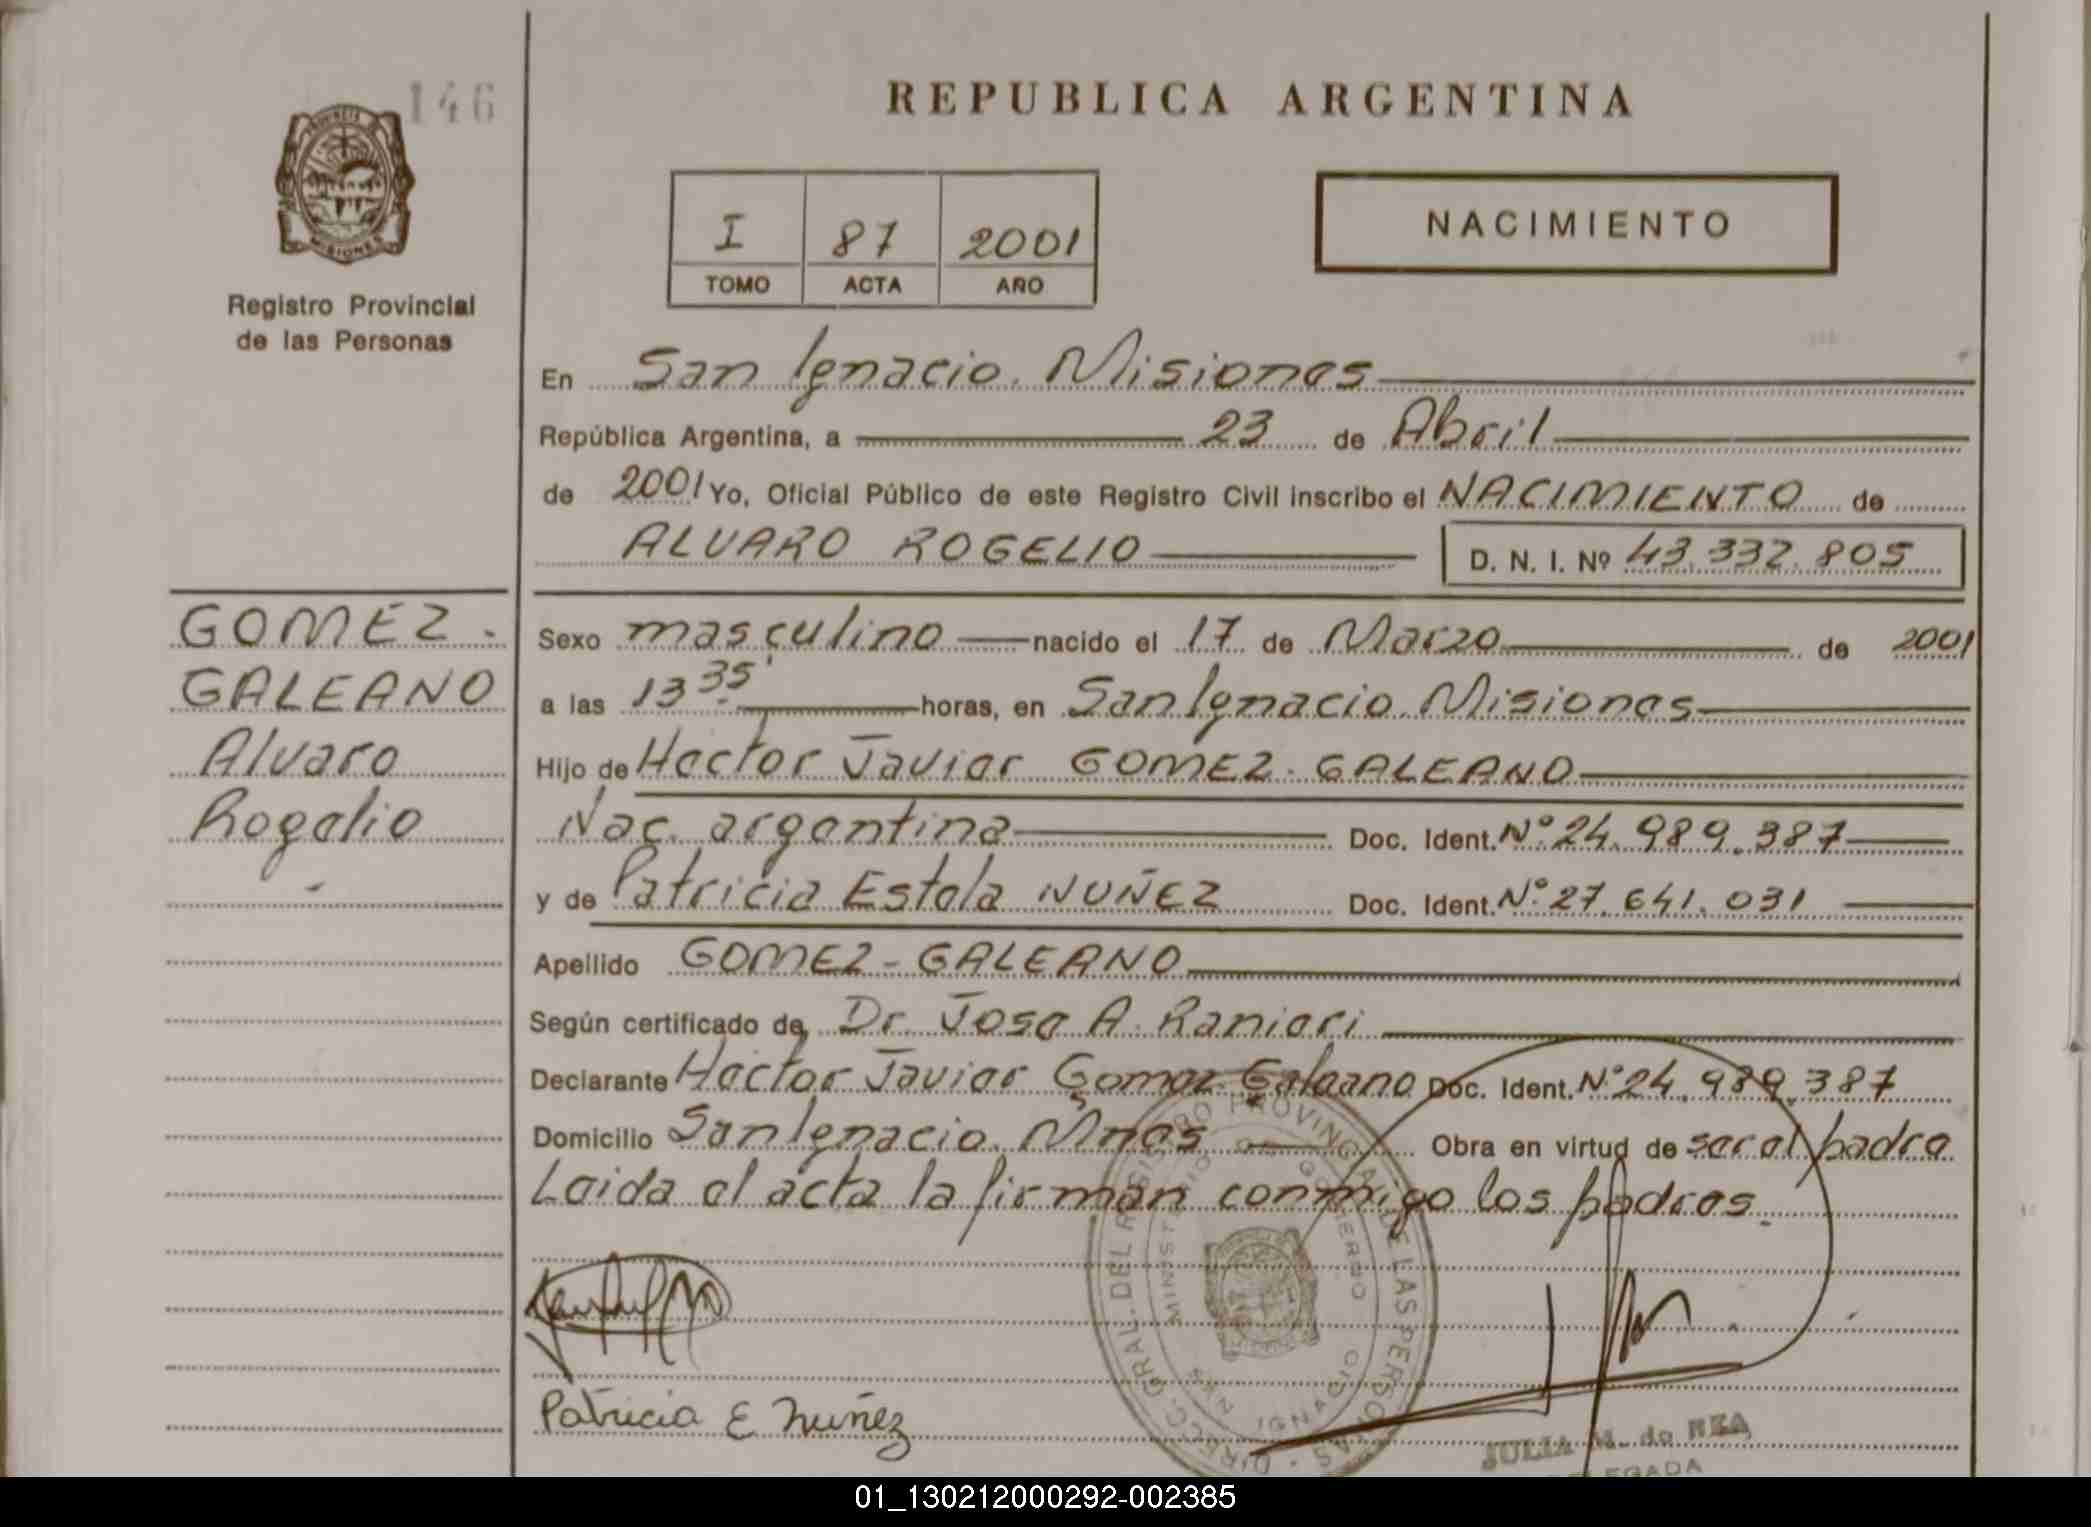 146
REPUBLICA ARGENTINA
PROVINCIA
MISIONES
Registro Provincial
de las Personas
I 87 2001
TOMO ACTA AÑO
NACIMIENTO
En San Ignacio. Misiones
República Argentina, a 23 de Abril
de 2001 Yo, Oficial Público de este Registro Civil inscribo el NACIMIENTO de
ALVARO ROGELIO D. N. I. Nº 43.332.805
GOMEZ -
GALEANO
Alvaro
Rogelio
Sexo masculino nacido el 17 de Marzo de 2001
a las 13 35' horas, en San Ignacio. Misiones
Hijo de Hector Javier GOMEZ - GALEANO
Nac. argentina Doc. Ident. Nº 24.989.387
y de Patricia Estela NUÑEZ Doc. Ident. Nº 27.641.031
Apellido GOMEZ - GALEANO
Según certificado de Dr. Jose A. Ranieri
Declarante Hector Javier Gomez Galeano Doc. Ident. Nº 24.989.387
Domicilio San Ignacio. Mnes Obra en virtud de ser el padre
Leida el acta la firman conmigo los padres.
DIRECC. GRAL. DEL REGISTRO PROVINCIAL DE LAS PERSONAS
MINISTERIO DE GOBIERNO
SAN IGNACIO
Patricia E Nuñez
JULIA M. de REA
DELEGADA
01_130212000292-002385